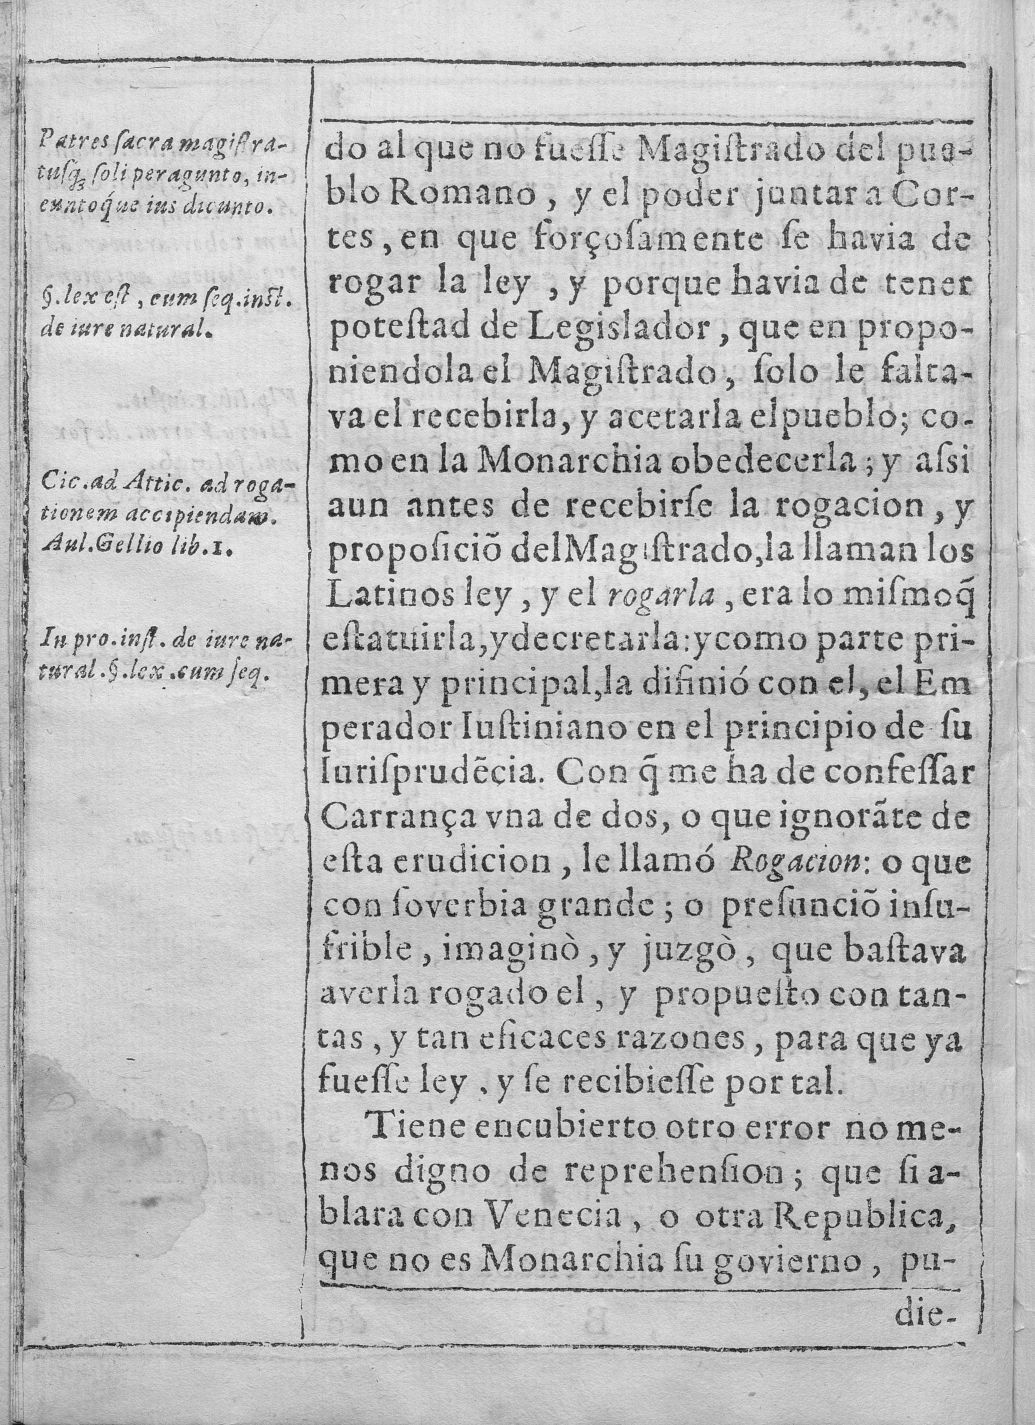 Patres ſacra magiſtra-
tuſqꝫ ſoli peragunto, in-
euntoq́ue ius dicunto.
§.lex eſt, cum ſeq.inſt.
de iure natural.
Cic.ad Attic. ad roga-
tionem accipiendam.
Aul.Gellio lib.1.
In pro.inſt. de iure na-
tural.§.lex.cum ſeq.
do al que no fueſſe Magiſtrado del pue-
blo Romano, y el poder juntar a Cor-
tes, en que forçoſamente ſe havia de
rogar la ley, y porque havia de tener
poteſtad de Legislador, que en propo-
niendola el Magiſtrado, ſolo le falta-
va el recebirla, y acetarla el pueblo; co-
mo en la Monarchia obedecerla; y aſsi
aun antes de recebirſe la rogacion, y
propoſiciõ del Magiſtrado, la llaman los
Latinos ley, y el rogarla, era lo miſmo q̃
eſtatuirla, y decretarla: y como parte pri-
mera y principal, la difinió con el, el Em
perador Iuſtiniano en el principio de ſu
Iuriſprudẽcia. Con q̃ me ha de confeſſar
Carrança vna de dos, o que ignorãte de
eſta erudicion, le llamó Rogacion: o que
con ſoverbia grande; o preſunciõ inſu-
frible, imaginò, y juzgò, que baſtava
averla rogado el, y propueſto con tan-
tas, y tan eficaces razones, para que ya
fueſſe ley, y ſe recibieſſe por tal.
Tiene encubierto otro error no me-
nos digno de reprehenſion; que ſi a-
blara con Venecia, o otra Republica,
que no es Monarchia ſu govierno, pu-
die-